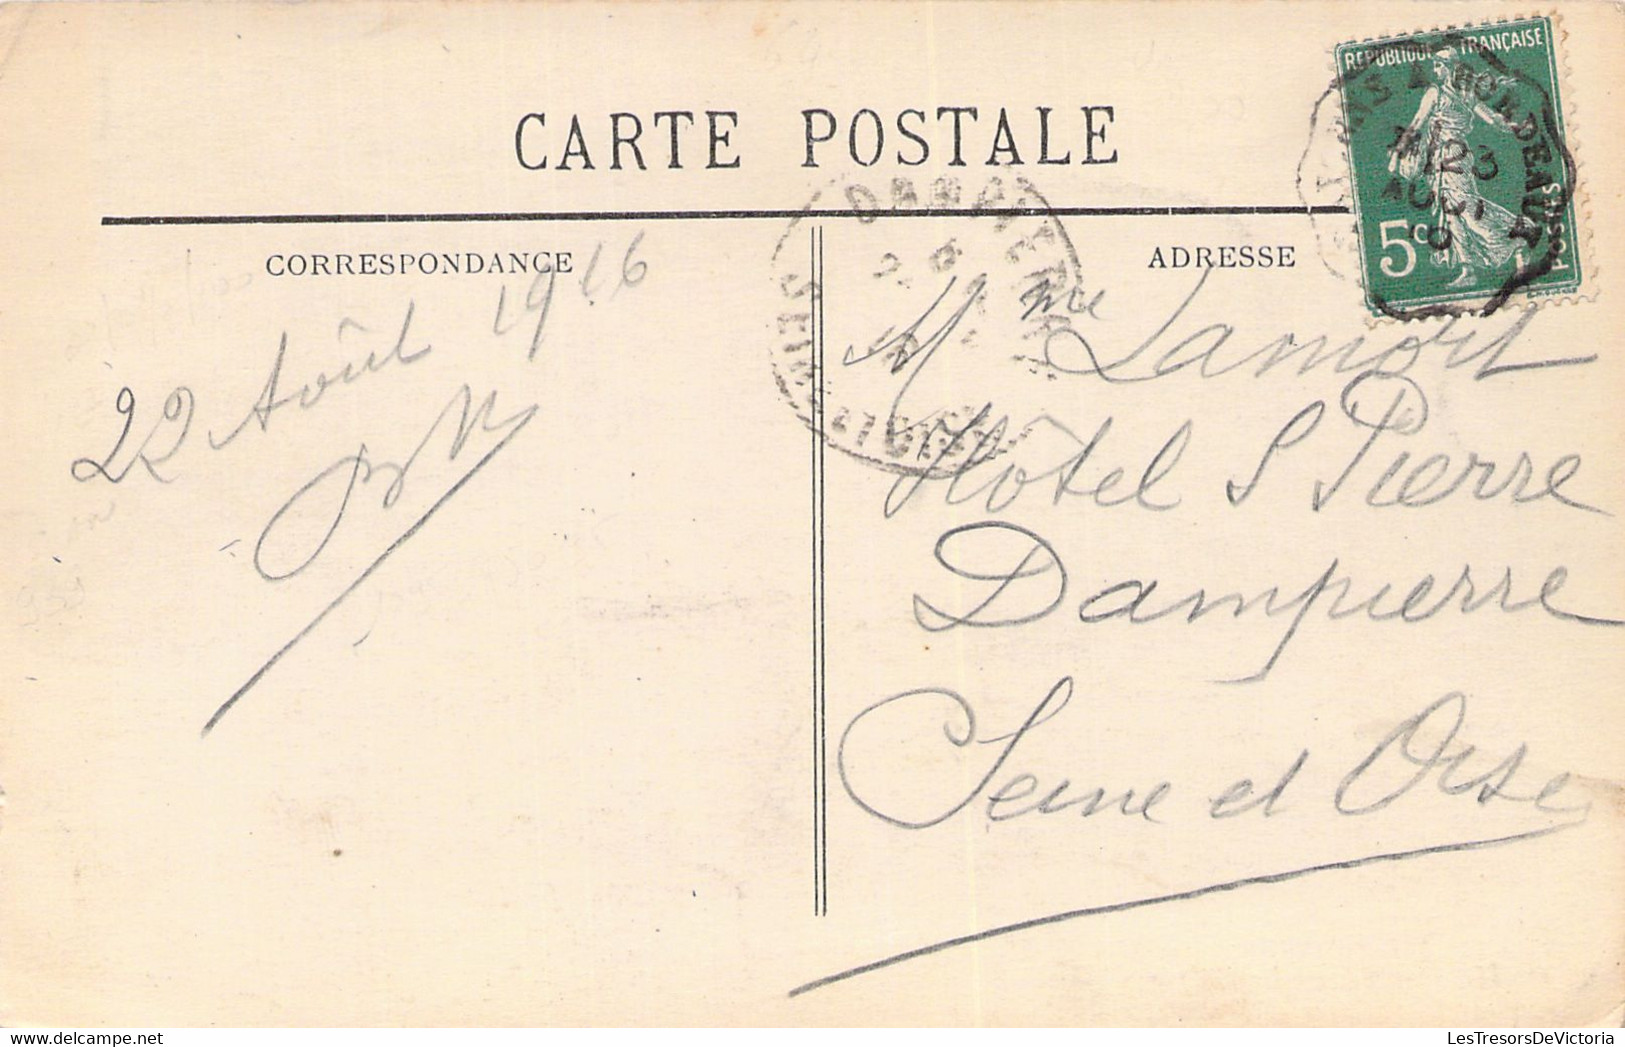 CARTE POSTALE
CORRESPONDANCE
ADRESSE
REPUBLIQUE FRANÇAISE
5c
POSTES
A BORDEAUX
23
AOUT
DAMPIERRE
SEINE-ET-OISE
22 Août 1916
Mme Lamort
Hôtel S Pierre
Dampierre
Seine et Oise
LesTresorsDeVictoria